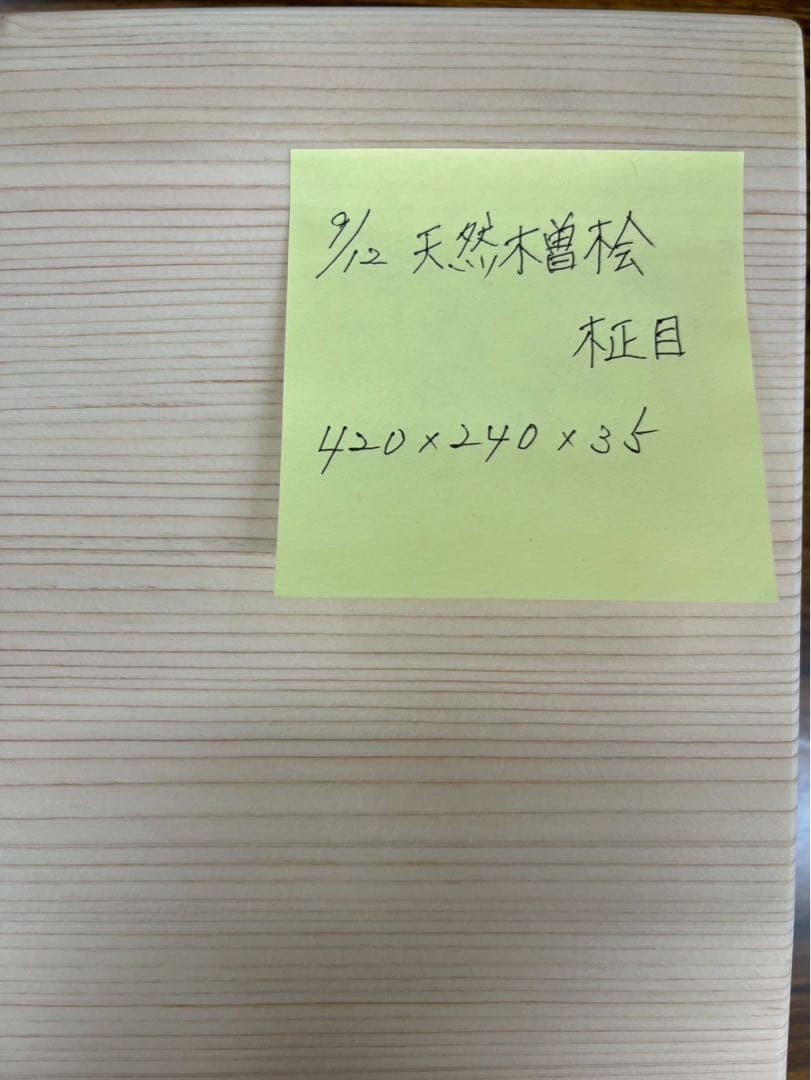 9/12 天然木曽桧
柾目
420×240×35